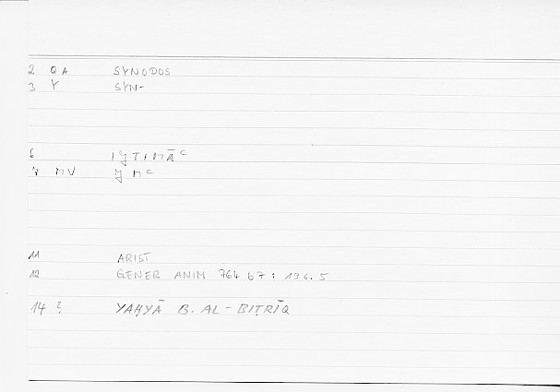 2 QA SYNODOS
3 Y SYN-
6 IJTIMĀᶜ
7 MV JMᶜ
11 ARIST
12 GENER ANIM 764 b7 : 136.5
14 ? YAḤYĀ B. AL-BIṬRĪQ